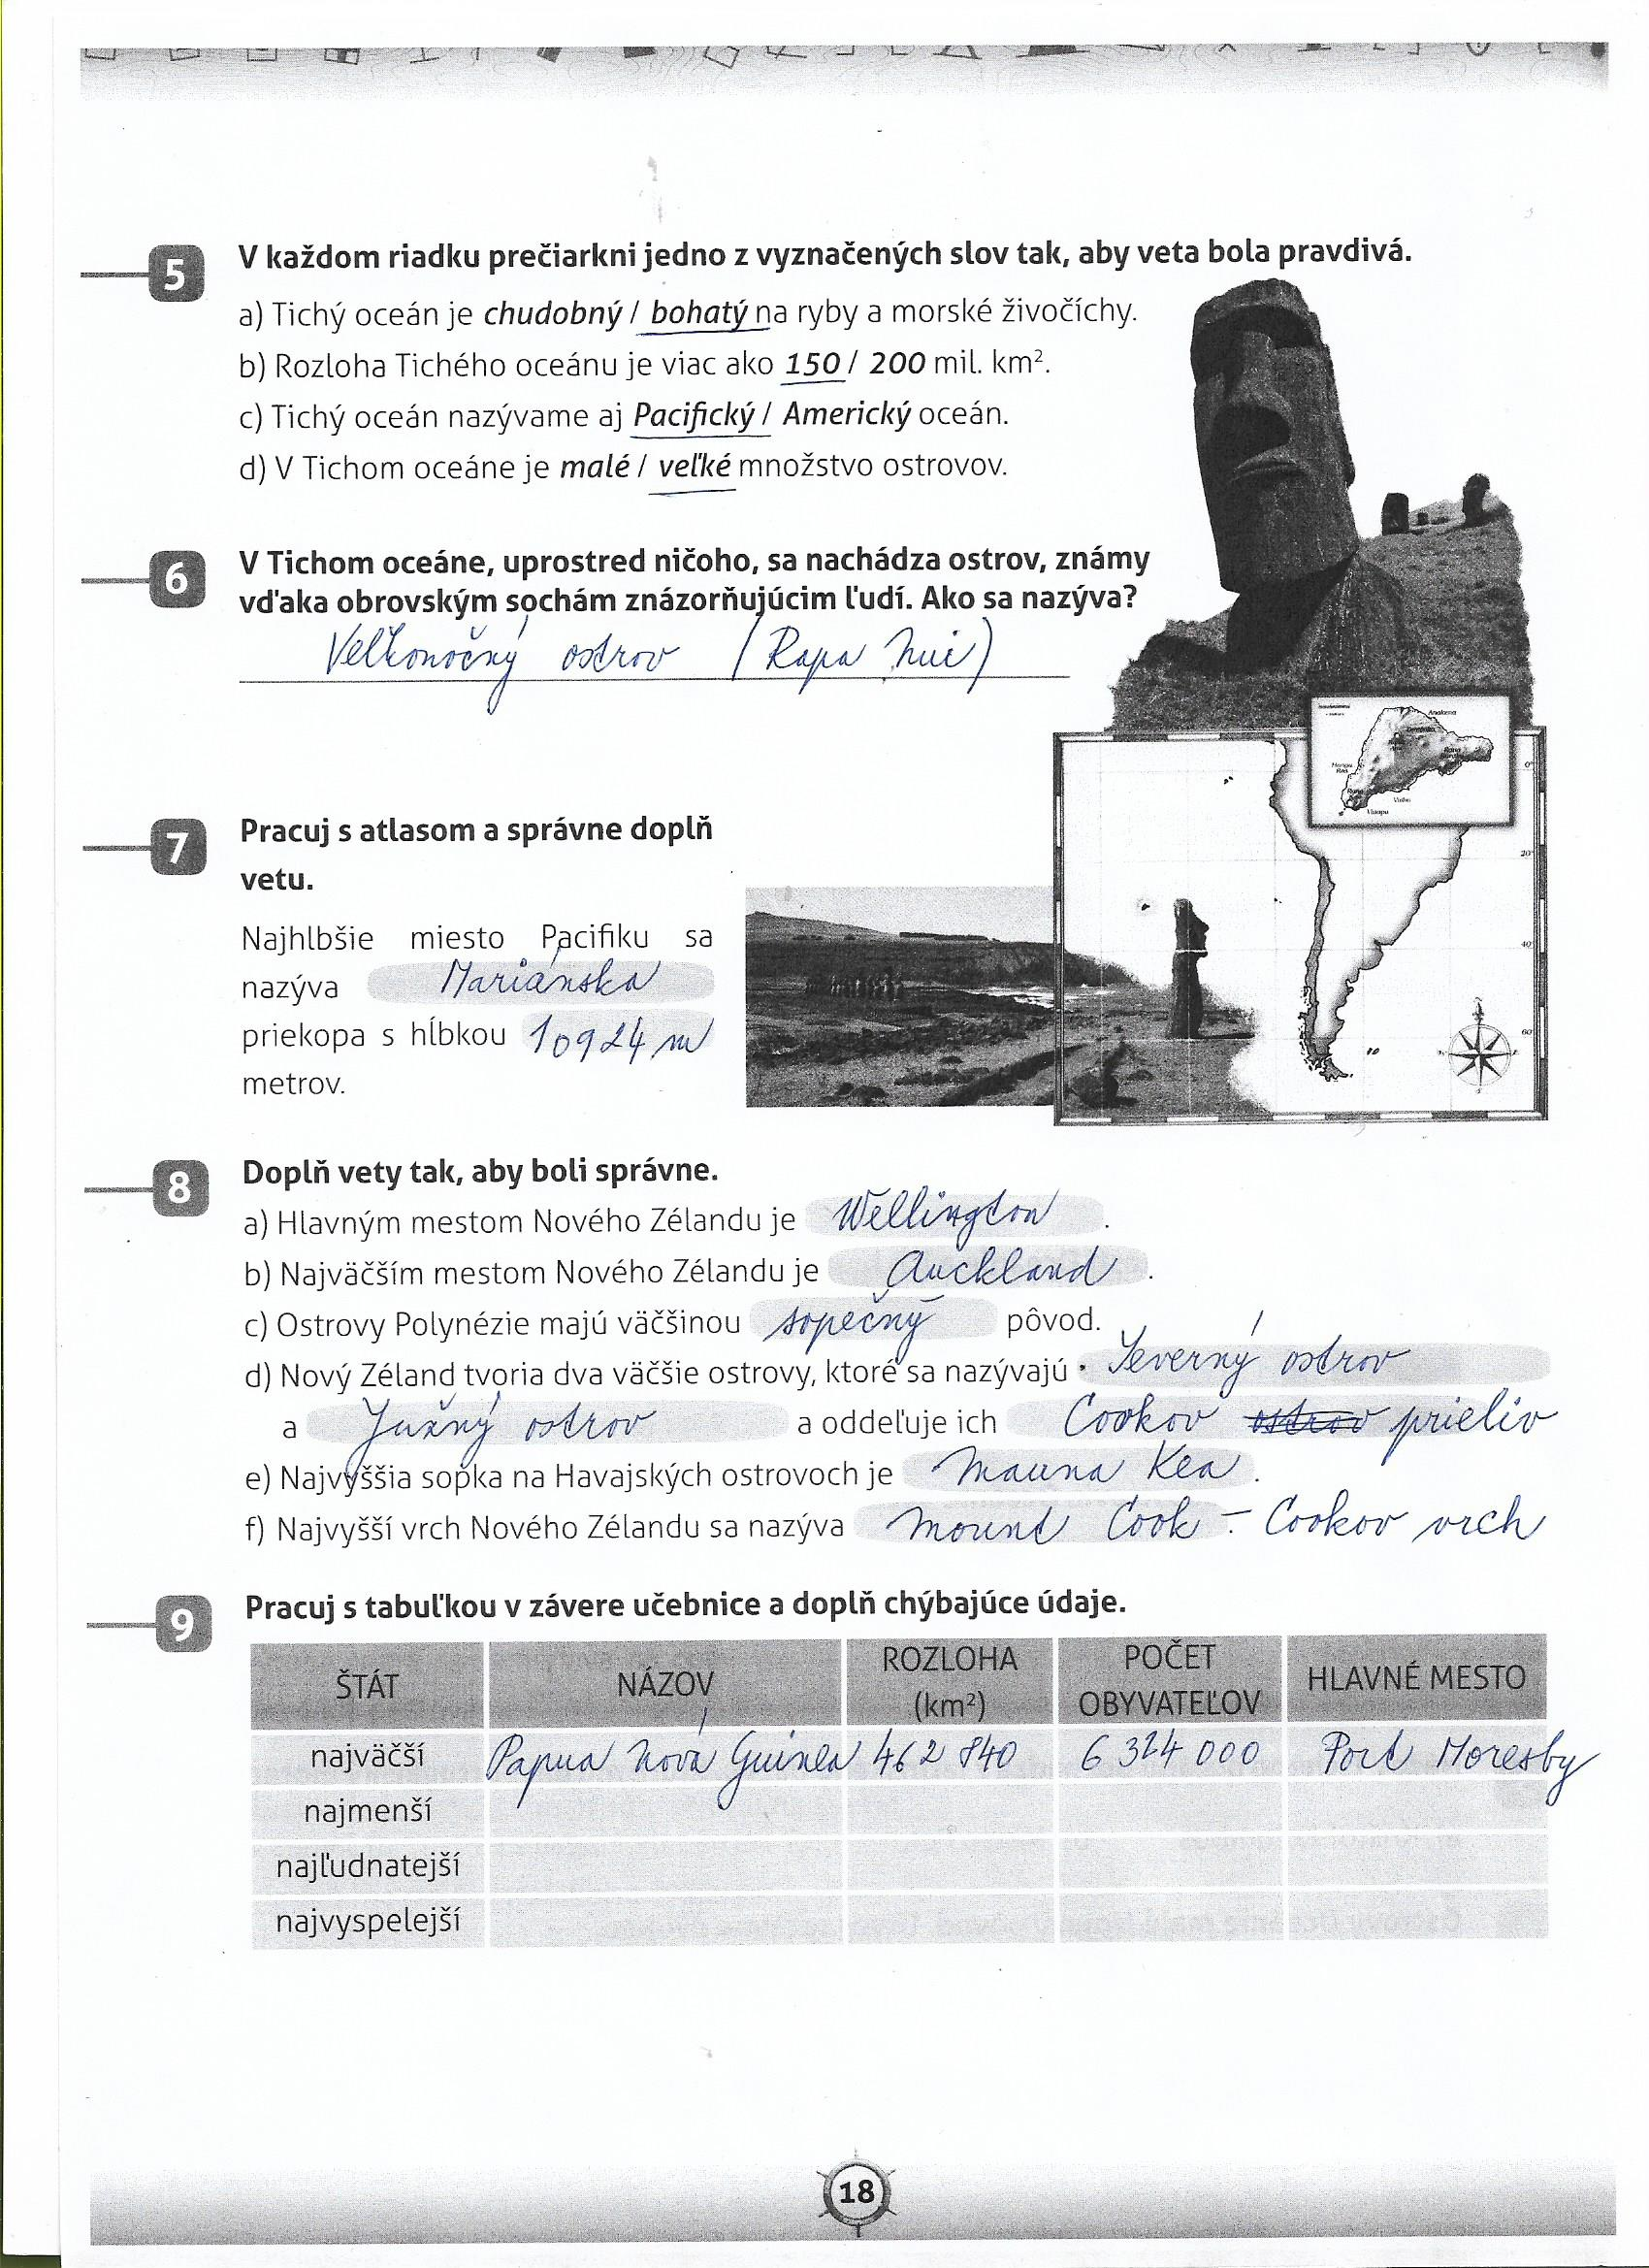 5 V každom riadku prečiarkni jedno z vyznačených slov tak, aby veta bola pravdivá.
a) Tichý oceán je chudobný / bohatý na ryby a morské živočíchy.
b) Rozloha Tichého oceánu je viac ako 150 / 200 mil. km².
c) Tichý oceán nazývame aj Pacifický / Americký oceán.
d) V Tichom oceáne je malé / veľké množstvo ostrovov.
6 V Tichom oceáne, uprostred ničoho, sa nachádza ostrov, známy
vďaka obrovským sochám znázorňujúcim ľudí. Ako sa nazýva?
Veľkonočný ostrov (Rapa Nui)
7 Pracuj s atlasom a správne doplň
vetu.
Najhlbšie miesto Pacifiku sa
nazýva Mariánska
priekopa s hĺbkou 10924 m
metrov.
0°
20°
40°
60°
8 Doplň vety tak, aby boli správne.
a) Hlavným mestom Nového Zélandu je Wellington .
b) Najväčším mestom Nového Zélandu je Auckland .
c) Ostrovy Polynézie majú väčšinou sopečný pôvod.
d) Nový Zéland tvoria dva väčšie ostrovy, ktoré sa nazývajú Severný ostrov
a Južný ostrov a oddeľuje ich Cookov ostrov prieliv
e) Najvyššia sopka na Havajských ostrovoch je Mauna Kea .
f) Najvyšší vrch Nového Zélandu sa nazýva Mount Cook - Cookov vrch
9 Pracuj s tabuľkou v závere učebnice a doplň chýbajúce údaje.
ŠTÁT NÁZOV ROZLOHA (km²) POČET OBYVATEĽOV HLAVNÉ MESTO
najväčší Papua Nová Guinea 462 840 6 324 000 Port Moresby
najmenší
najľudnatejší
najvyspelejší
18